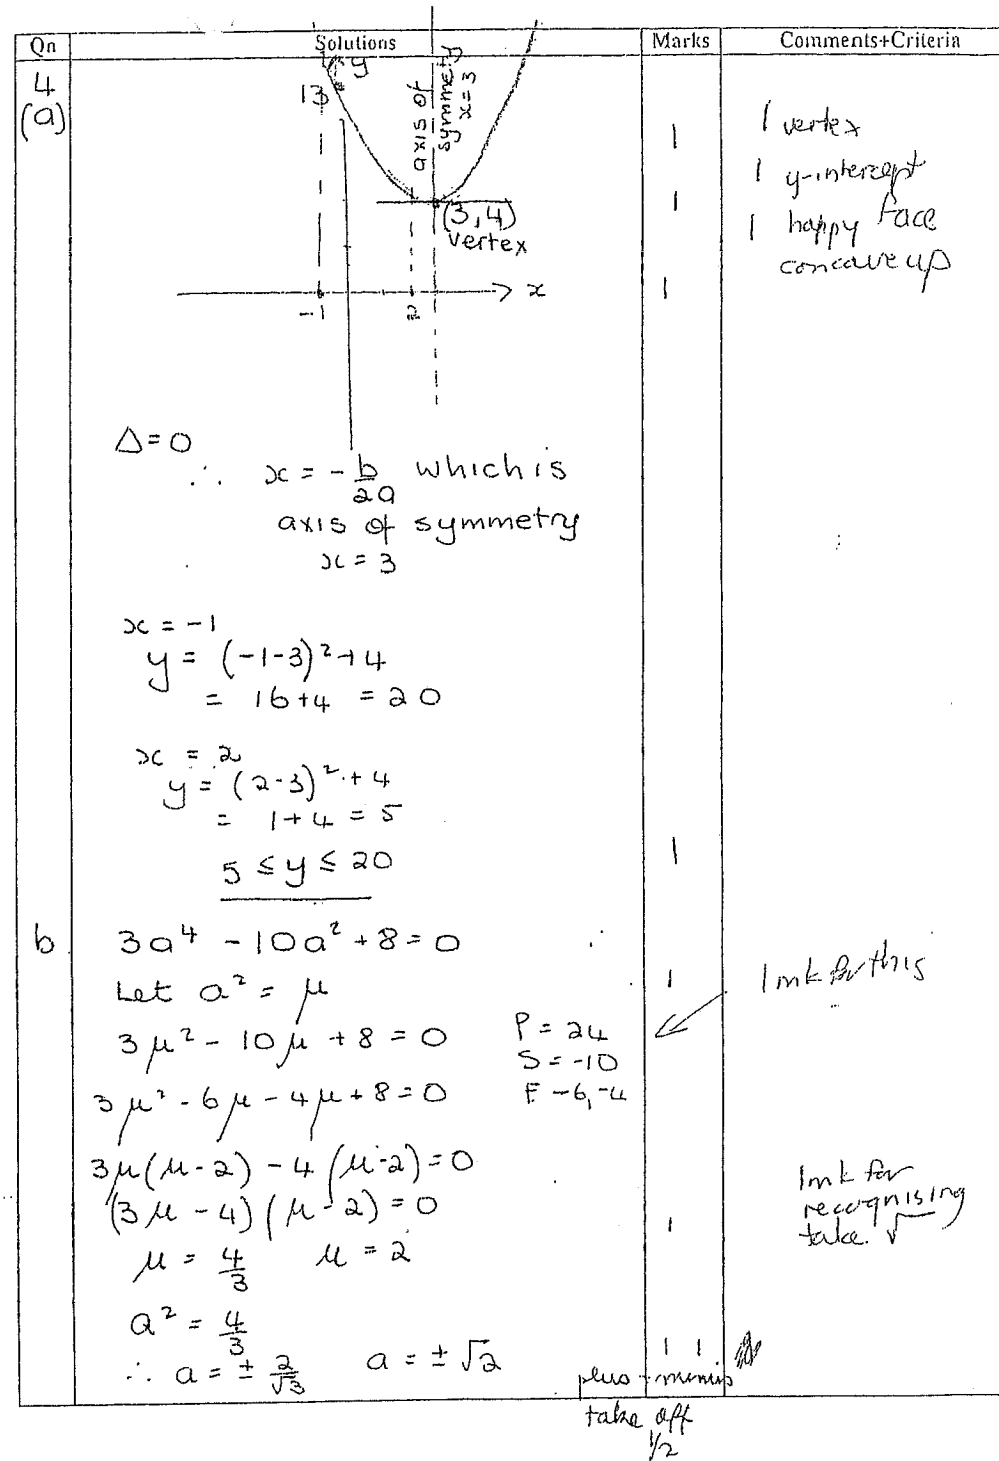 Qn Solutions Marks Comments+Criteria
4
(a)
y
13
axis of
symmetry
x=3
(3,4)
vertex
x
-1
2
1
1
1
1 vertex
1 y-intercept
1 happy face
concave up
Δ=0
∴ x = -b/2a which is
axis of symmetry
x = 3
x = -1
y = (-1-3)² + 4
= 16+4 = 20
x = 2
y = (2-3)² + 4
= 1+4 = 5
5 ≤ y ≤ 20
1
b 3a⁴ - 10a² + 8 = 0
Let a² = μ
1
1 mk for this
3μ² - 10μ + 8 = 0
P = 24
S = -10
F -6,-4
3μ² - 6μ - 4μ + 8 = 0
3μ(μ-2) - 4(μ-2) = 0
(3μ - 4)(μ-2) = 0
1
1mk for
recognising
take √
μ = 4/3 μ = 2
a² = 4/3
∴ a = ± 2/√3 a = ± √2
1 1
plus + minus
take off
1/2